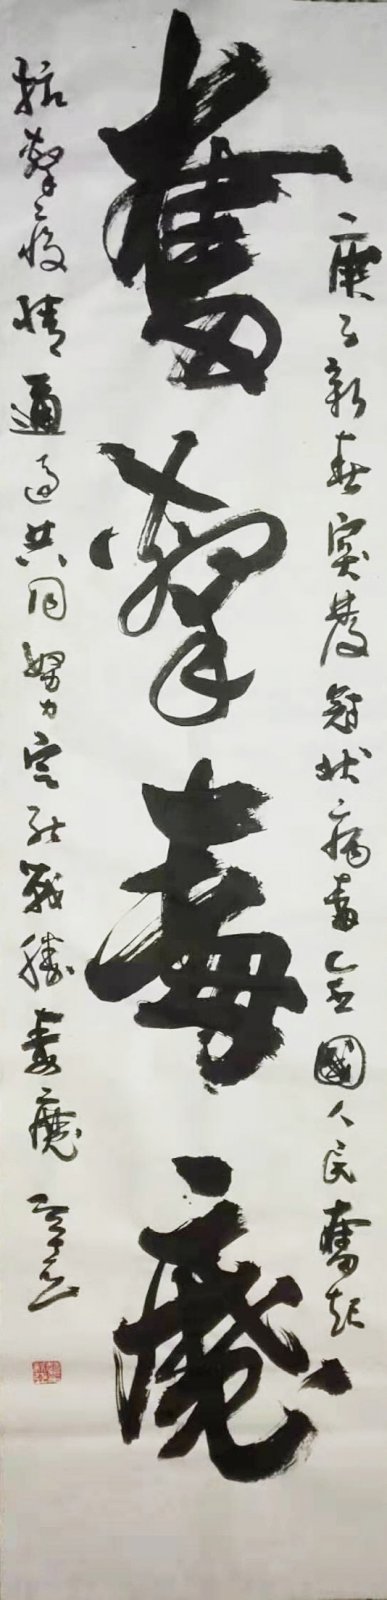 奮擊毒魔
庚子新春突發冠狀病毒全國人民奮起
抗擊疫情通過共同努力定能戰勝毒魔